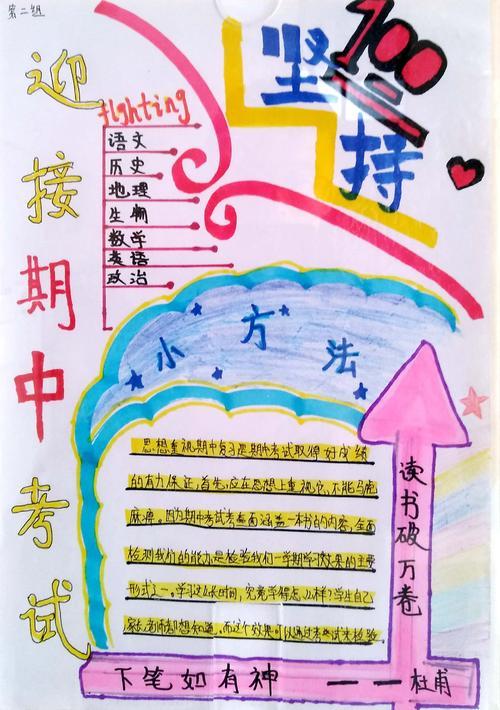 第二组
迎接期中考试
fighting
语文
历史
地理
生物
数学
英语
政治
100
坚持
小方法
思想重视期中复习是期中考试取得好成绩
的有力保证,首先,应在思想上重视它,不能马虎
麻痹。因为期中考试卷面涵盖一本书的内容,全面
检测我们的能力是检验我们一学期学习效果的主要
形式之一。学习这么长时间,究竟学得怎么样?学生自己
家长老师都想知道。而这个效果可以通过考试来检验
读书破万卷
下笔如有神 ——杜甫